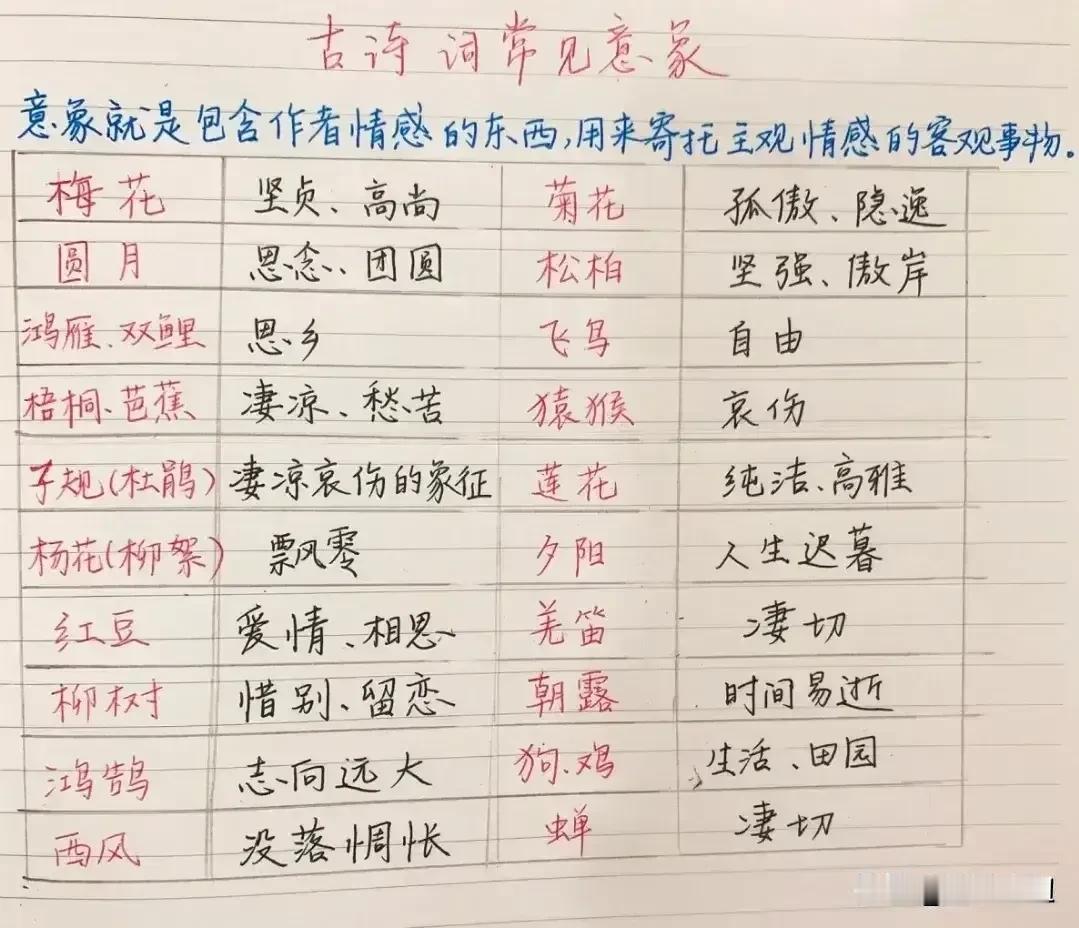 古诗词常见意象
意象就是包含作者情感的东西,用来寄托主观情感的客观事物。
梅花 坚贞、高尚 菊花 孤傲、隐逸
圆月 思念、团圆 松柏 坚强、傲岸
鸿雁、双鲤 思乡 飞鸟 自由
梧桐、芭蕉 凄凉、愁苦 猿猴 哀伤
子规(杜鹃) 凄凉哀伤的象征 莲花 纯洁、高雅
杨花(柳絮) 飘风零 夕阳 人生迟暮
红豆 爱情、相思 羌笛 凄切
柳树 惜别、留恋 朝露 时间易逝
鸿鹄 志向远大 狗、鸡 生活、田园
西风 没落惆怅 蝉 凄切